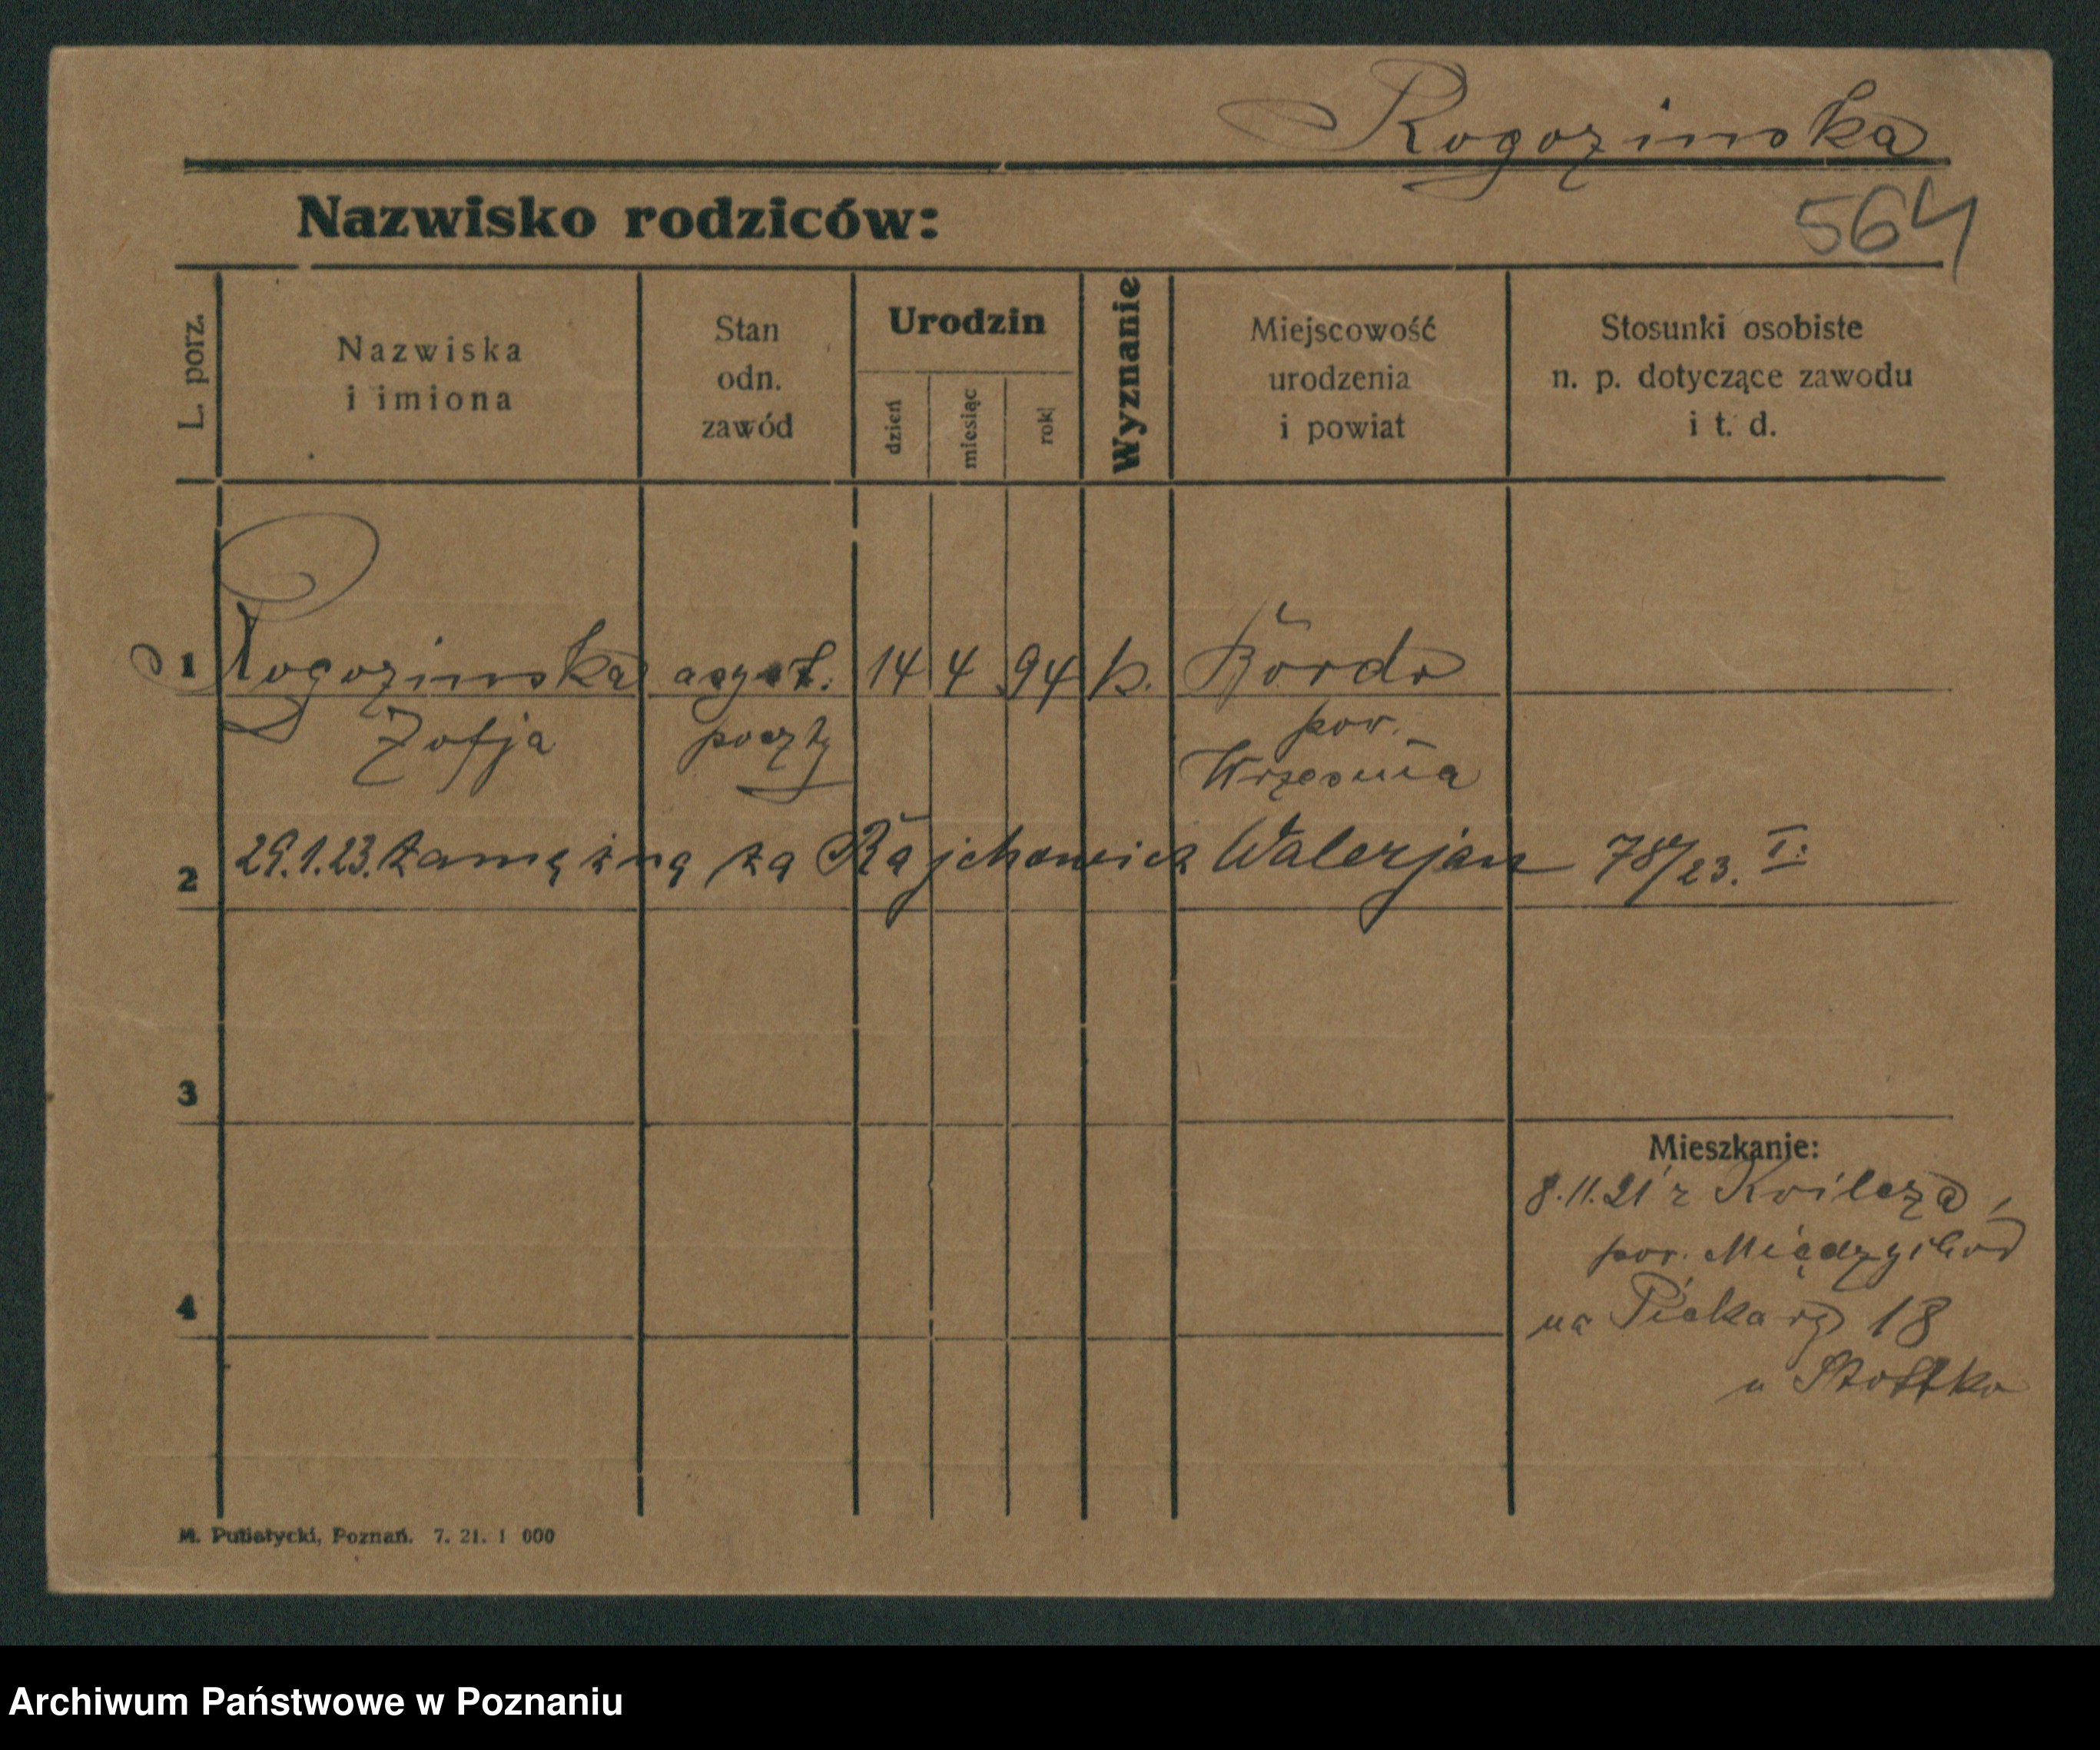 Rogozinska
Nazwisko rodziców:
564
L. porz.
Nazwiska
i imiona
Stan
odn.
zawód
Urodzin
dzień
miesiąc
rok
Wyznanie
Miejscowość
urodzenia
i powiat
Stosunki osobiste
n. p. dotyczące zawodu
i t. d.
1 Rogozinska asyst. 14 4 94 k.
Zofja poczty pow.
Września
2 29.1.23. zamężną za Walerjan /23. I:
3
Mieszkanie:
8.11.21 z Kwilcza,
pow. Międzychód
4
na Piekary 18
u
M. Putiatycki, Poznań. 7. 21. 1 000
Archiwum Państwowe w Poznaniu